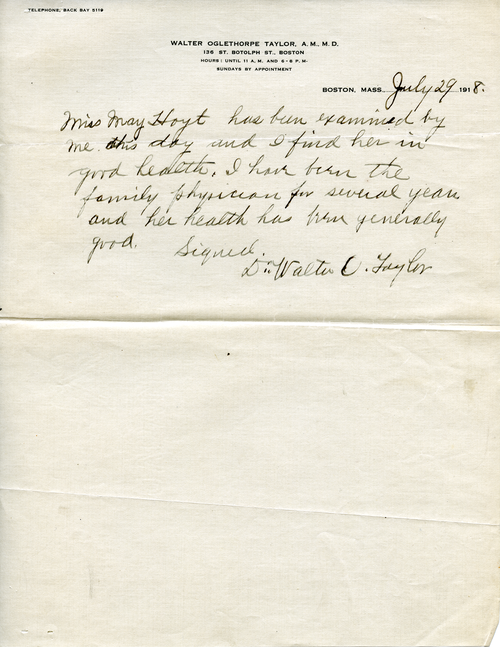 TELEPHONE, BACK BAY 5119
WALTER OGLETHORPE TAYLOR, A. M., M. D.
136 ST. BOTOLPH ST., BOSTON
HOURS: UNTIL 11 A. M. AND 6-8 P. M.
SUNDAYS BY APPOINTMENT
BOSTON, MASS. July 29 1918.
Miss May Hoyt has been examined by
me this day and I find her in
good health. I have been the
family physician for several years
and her health has been generally
good. Signed.
Dr. Walter O. Taylor